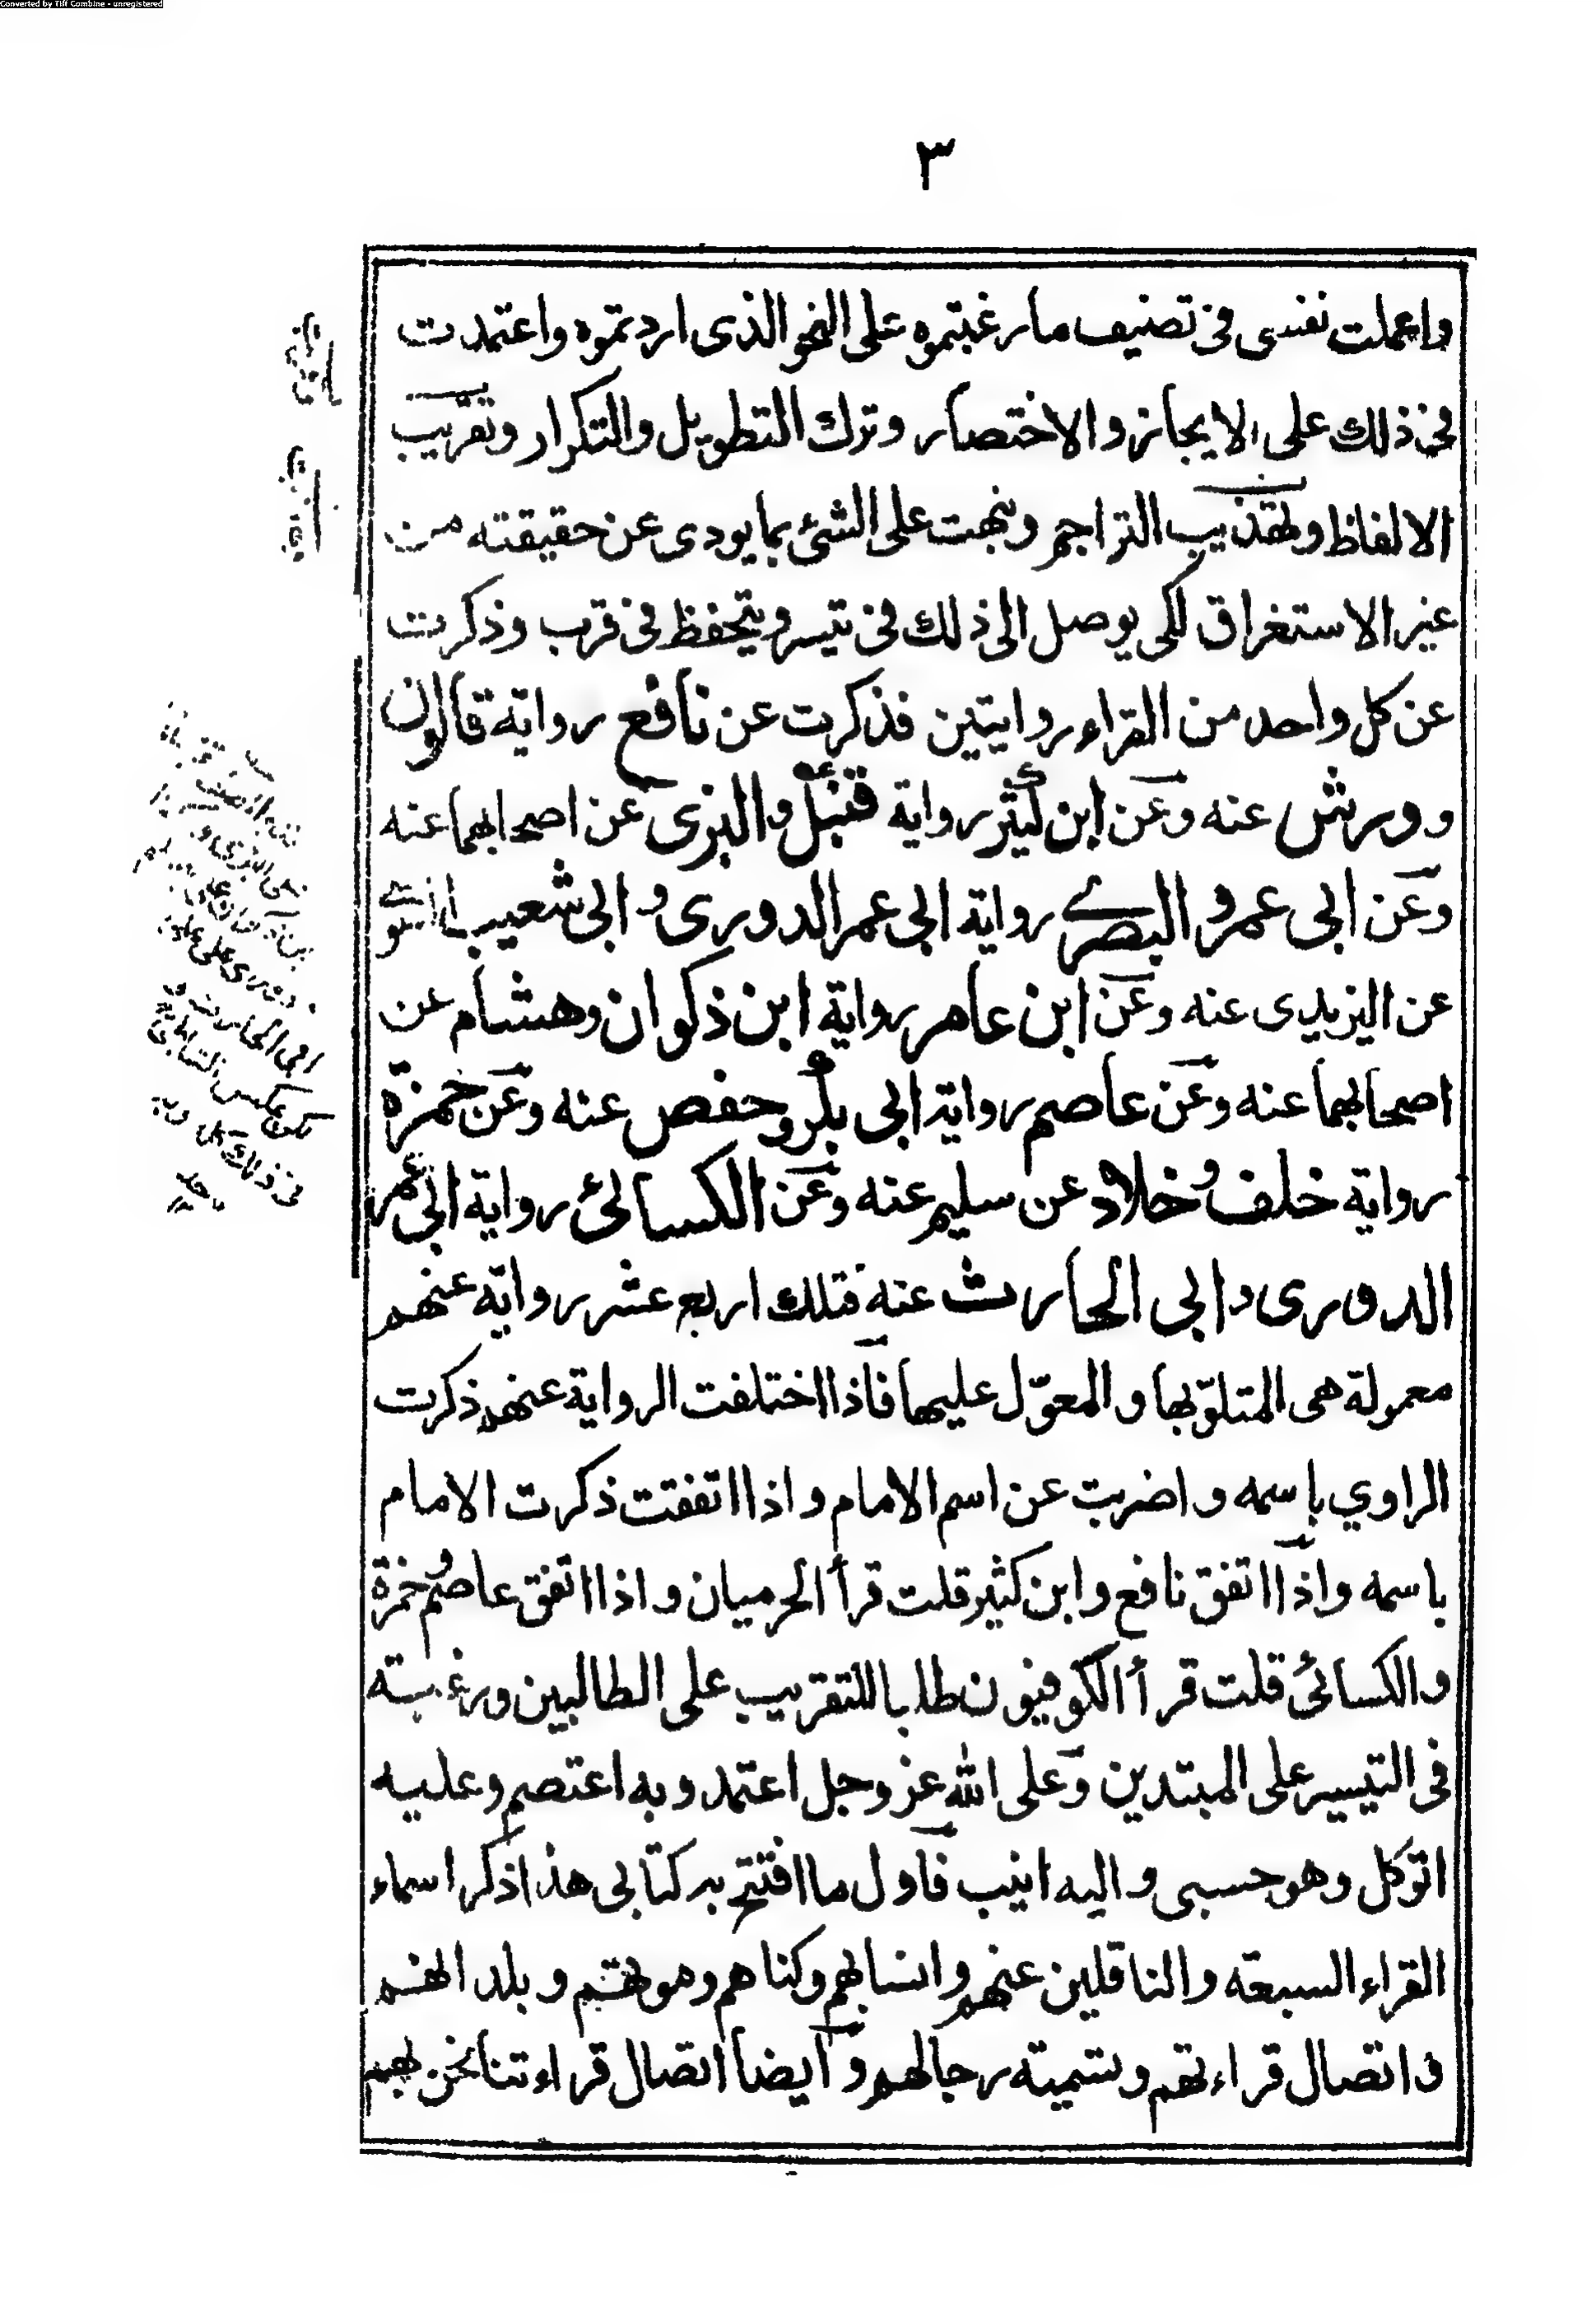 Converted by Tiff Combine - unregistered
٣
واعملت نفسى فى تصنيف ما رغبتموه على النحو الذى اردتموه واعتمدت
فى ذلك على الايجاز والاختصار وترك التطويل والتكرار وتقريب
الالفاظ وتهذيب التراجم ونبهت على الشئ بما يودى عن حقيقته من
غير الاستغراق لكى يوصل الى ذلك فى يسر ويتحفظ فى قرب وذكرت
عن كل واحد من القراء روايتين فذكرت عن نافع رواية قالون
وورش عنه وعن ابن كثير رواية قنبل والبزى عن اصحابهما عنه
وعن ابى عمرو البصرے رواية ابى عمر الدورى وابى شعيب السوسے
عن اليزيدى عنه وعن ابن عامر رواية ابن ذكوان وهشام عن
اصحابهما عنه وعن عاصم رواية ابى بكر وحفص عنه وعن حمزة
رواية خلف وخلاد عن سليم عنه وعن الكسائى رواية ابى عمر
الدورى وابى الحارث عنه فتلك اربع عشر رواية عنهم
معمولة هى المتلوّ بها والمعوّل عليها فاذا اختلفت الرواية عنهم ذكرت
الراوي باسمه واضربت عن اسم الامام واذا اتفقت ذكرت الامام
باسمه واذا اتفق نافع وابن كثير قلت قرأ الحرميان واذا اتفق عاصم وحمزة
والكسائى قلت قرأ الكوفيون طلبا للتقريب على الطالبين ورغبة
فى التيسير على المبتدين وعلى الله عز وجل اعتمد وبه اعتصم وعليه
اتوكل وهو حسبى واليه انيب فاول ما افتتح به كتابى هذا ذكر اسماء
القراء السبعة والناقلين عنهم وانسابهم وكناهم وموتهم وبلدانهم
واتصال قراءتهم وتسمية رجالهم وايضا اتصال قراءتنا نحن بهم